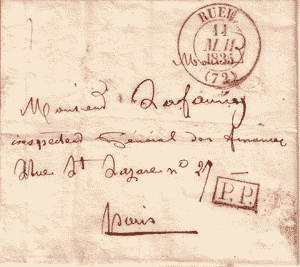 RUEIL
11
MAI
1835
(72)
Monsieur
inspecteur Général des finances
Rue St Lazare n° 27
P.P.
Paris